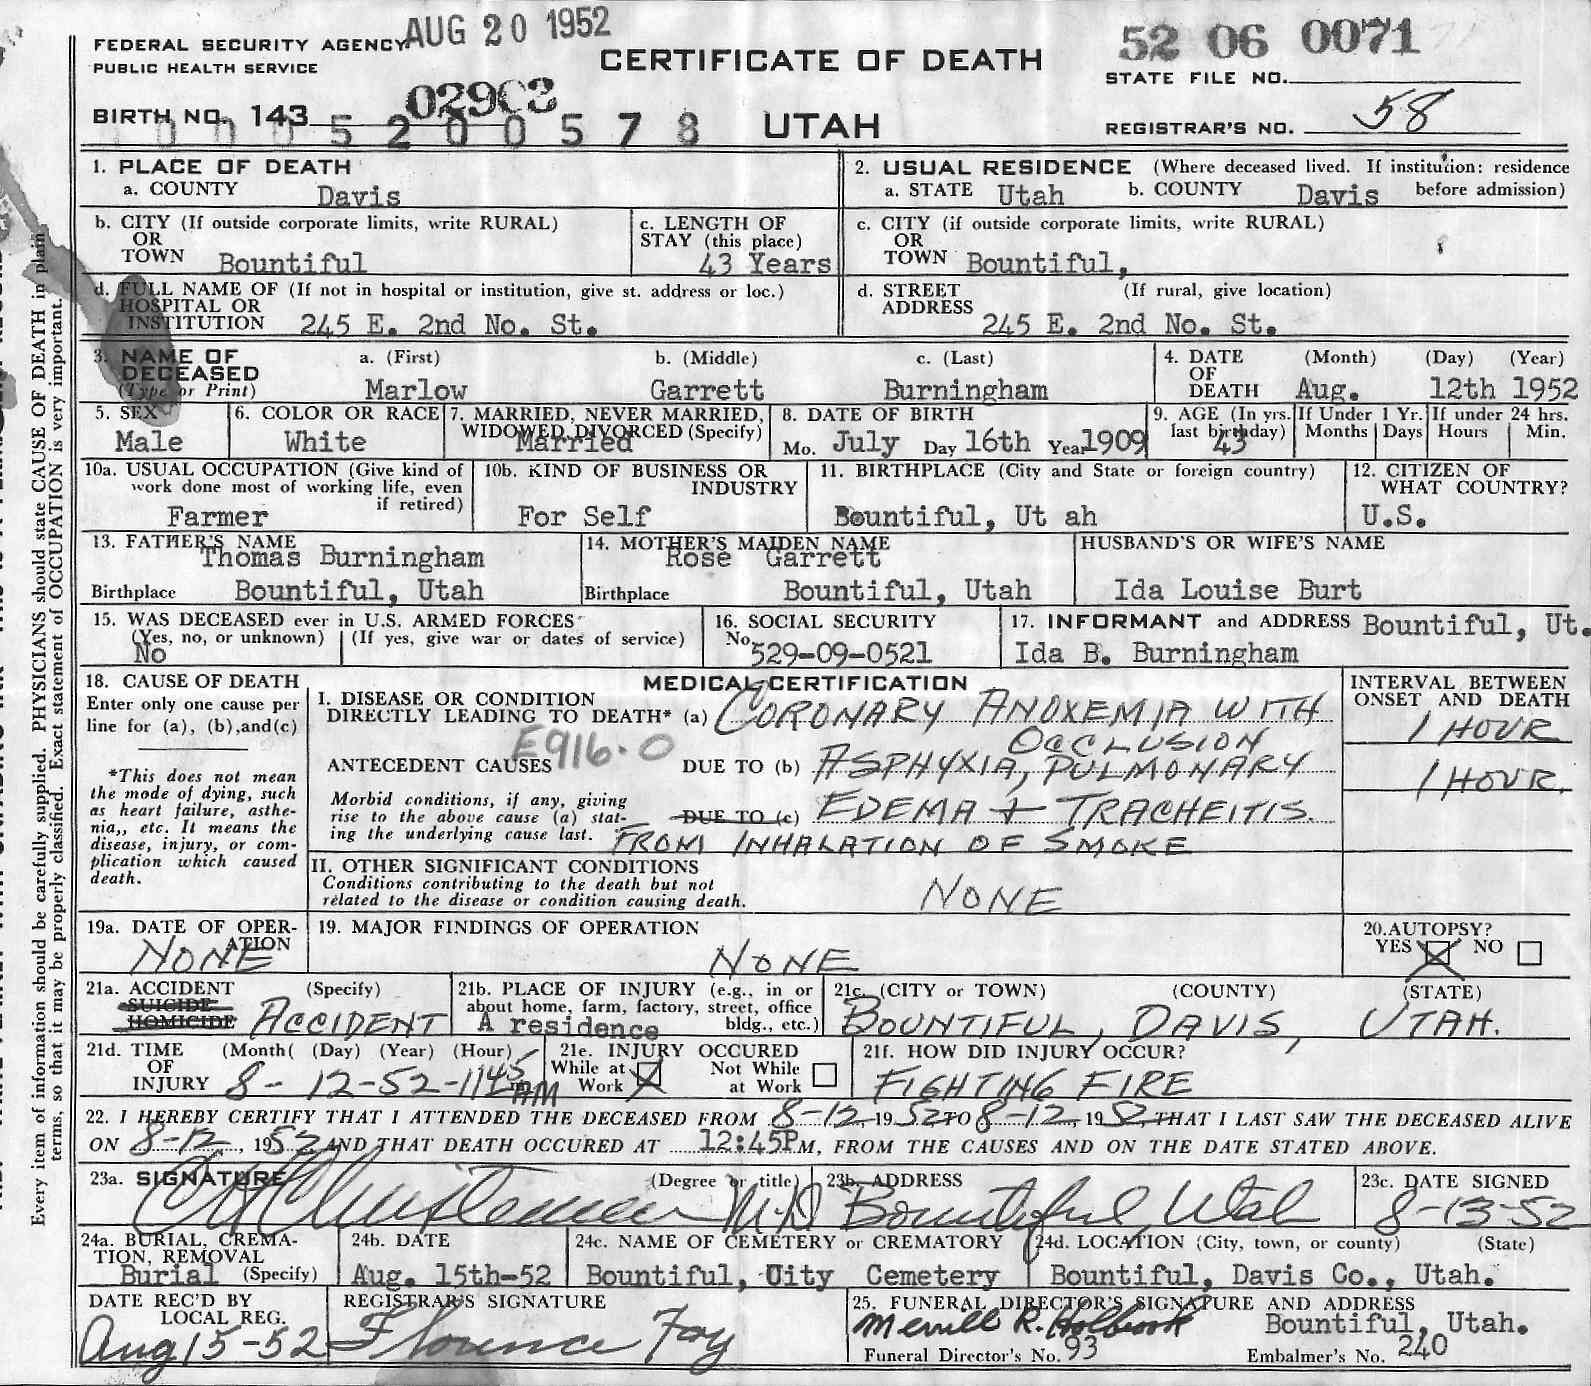 AUG 20 1952
52 06 0071
FEDERAL SECURITY AGENCY
PUBLIC HEALTH SERVICE
CERTIFICATE OF DEATH
STATE FILE NO.
BIRTH NO. 143
0 0 0 5 2 0 0 5 7 8
UTAH
REGISTRAR'S NO. 58
1. PLACE OF DEATH
a. COUNTY Davis
2. USUAL RESIDENCE (Where deceased lived. If institution: residence before admission)
a. STATE Utah b. COUNTY Davis
b. CITY (If outside corporate limits, write RURAL)
OR
TOWN Bountiful
c. LENGTH OF
STAY (this place)
43 Years
c. CITY (if outside corporate limits, write RURAL)
OR
TOWN Bountiful,
d. FULL NAME OF (If not in hospital or institution, give st. address or loc.)
HOSPITAL OR
INSTITUTION 245 E. 2nd No. St.
d. STREET (If rural, give location)
ADDRESS 245 E. 2nd No. St.
3. NAME OF DECEASED (Type or Print)
a. (First) b. (Middle) c. (Last)
Marlow Garrett Burningham
4. DATE OF DEATH (Month) (Day) (Year)
Aug. 12th 1952
5. SEX
Male
6. COLOR OR RACE
White
7. MARRIED, NEVER MARRIED,
WIDOWED, DIVORCED (Specify)
Married
8. DATE OF BIRTH
Mo. July Day 16th Year 1909
9. AGE (In yrs. last birthday)
43
If Under 1 Yr.
Months Days
If under 24 hrs.
Hours Min.
10a. USUAL OCCUPATION (Give kind of
work done most of working life, even
if retired)
Farmer
10b. KIND OF BUSINESS OR
INDUSTRY
For Self
11. BIRTHPLACE (City and State or foreign country)
Bountiful, Ut ah
12. CITIZEN OF
WHAT COUNTRY?
U.S.
13. FATHER'S NAME
Thomas Burningham
Birthplace Bountiful, Utah
14. MOTHER'S MAIDEN NAME
Rose Garrett
Birthplace Bountiful, Utah
HUSBAND'S OR WIFE'S NAME
Ida Louise Burt
15. WAS DECEASED ever in U.S. ARMED FORCES
(Yes, no, or unknown) (If yes, give war or dates of service)
No
16. SOCIAL SECURITY
No. 529-09-0521
17. INFORMANT and ADDRESS Bountiful, Ut.
Ida B. Burningham
18. CAUSE OF DEATH
Enter only one cause per
line for (a), (b),and(c)
*This does not mean
the mode of dying, such
as heart failure, asthe-
nia,, etc. It means the
disease, injury, or com-
plication which caused
death.
MEDICAL CERTIFICATION
I. DISEASE OR CONDITION
DIRECTLY LEADING TO DEATH* (a) CORONARY ANOXEMIA WITH
OCCLUSION
E916.0
ANTECEDENT CAUSES DUE TO (b) ASPHYXIA, PULMONARY
Morbid conditions, if any, giving
rise to the above cause (a) stat-
ing the underlying cause last.
DUE TO (c) EDEMA + TRACHEITIS.
FROM INHALATION OF SMOKE
INTERVAL BETWEEN
ONSET AND DEATH
1 HOUR
1 HOUR.
II. OTHER SIGNIFICANT CONDITIONS
Conditions contributing to the death but not
related to the disease or condition causing death.
NONE
19a. DATE OF OPER-
ATION
NONE
19. MAJOR FINDINGS OF OPERATION
NONE
20.AUTOPSY?
YES NO
21a. ACCIDENT (Specify)
SUICIDE
HOMICIDE
ACCIDENT
21b. PLACE OF INJURY (e.g., in or
about home, farm, factory, street, office
bldg., etc.)
A residence
21c. (CITY or TOWN) (COUNTY) (STATE)
BOUNTIFUL, DAVIS, UTAH.
21d. TIME (Month( (Day) (Year) (Hour)
OF
INJURY 8-12-52-1145 AM
21e. INJURY OCCURED
While at Work
Not While at Work
21f. HOW DID INJURY OCCUR?
FIGHTING FIRE
22. I HEREBY CERTIFY THAT I ATTENDED THE DECEASED FROM 8-12, 1952 TO 8-12, 1952, THAT I LAST SAW THE DECEASED ALIVE
ON 8-12, 1952 AND THAT DEATH OCCURED AT 12:45P M, FROM THE CAUSES AND ON THE DATE STATED ABOVE.
23a. SIGNATURE (Degree or title)
M.D
23b. ADDRESS
Bountiful, Utah
23c. DATE SIGNED
8-13-52
24a. BURIAL, CREMA-
TION, REMOVAL
(Specify)
Burial
24b. DATE
Aug. 15th-52
24c. NAME OF CEMETERY or CREMATORY
Bountiful, City Cemetery
24d. LOCATION (City, town, or county) (State)
Bountiful, Davis Co., Utah.
DATE REC'D BY
LOCAL REG.
Aug 15-52
REGISTRAR'S SIGNATURE
Florence Foy
25. FUNERAL DIRECTOR'S SIGNATURE AND ADDRESS
Merrill R. Holbrook Bountiful, Utah.
Funeral Director's No. 93 Embalmer's No. 240
Every item of information should be carefully supplied. PHYSICIANS should state CAUSE OF DEATH in plain
terms, so that it may be properly classified. Exact statement of OCCUPATION is very important.